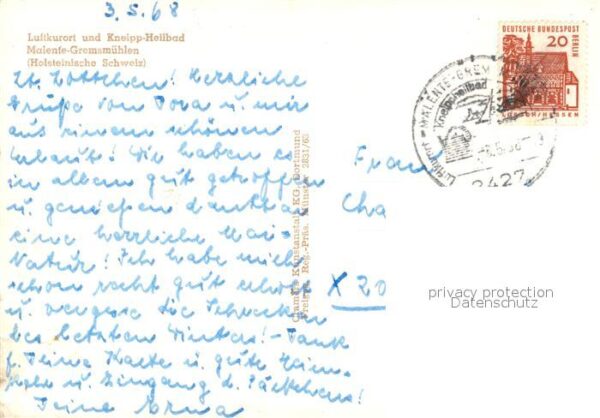 3.5.68
Luftkurort und Kneipp-Heilbad
Malente-Gremsmühlen
(Holsteinische Schweiz)
Lb. Lottchen! Herzliche
Grüße von Dora u. mir
aus einem schönen
Urlaub! Wir haben es
in allem gut getroffen
u. genießen dankbar
eine herrliche Mai-
Natur! Ich habe mich
schon recht gut erholt
u. vergesse die Schrecken
des letzten Winters! - Dank
f. Deine Karte u. gute Heim-
u. Eingang d. Päckchens!
Deine Erna
Cramers Kunstanstalt KG, Dortmund
Freigeg. Reg.-Präs. Münster 2831/63
Frau
Cha
X 20
DEUTSCHE BUNDESPOST
BERLIN
20
LORSCH/HESSEN
MALENTE-GREM
Kneippheilbad
Luftkurort
2427
privacy protection
Datenschutz